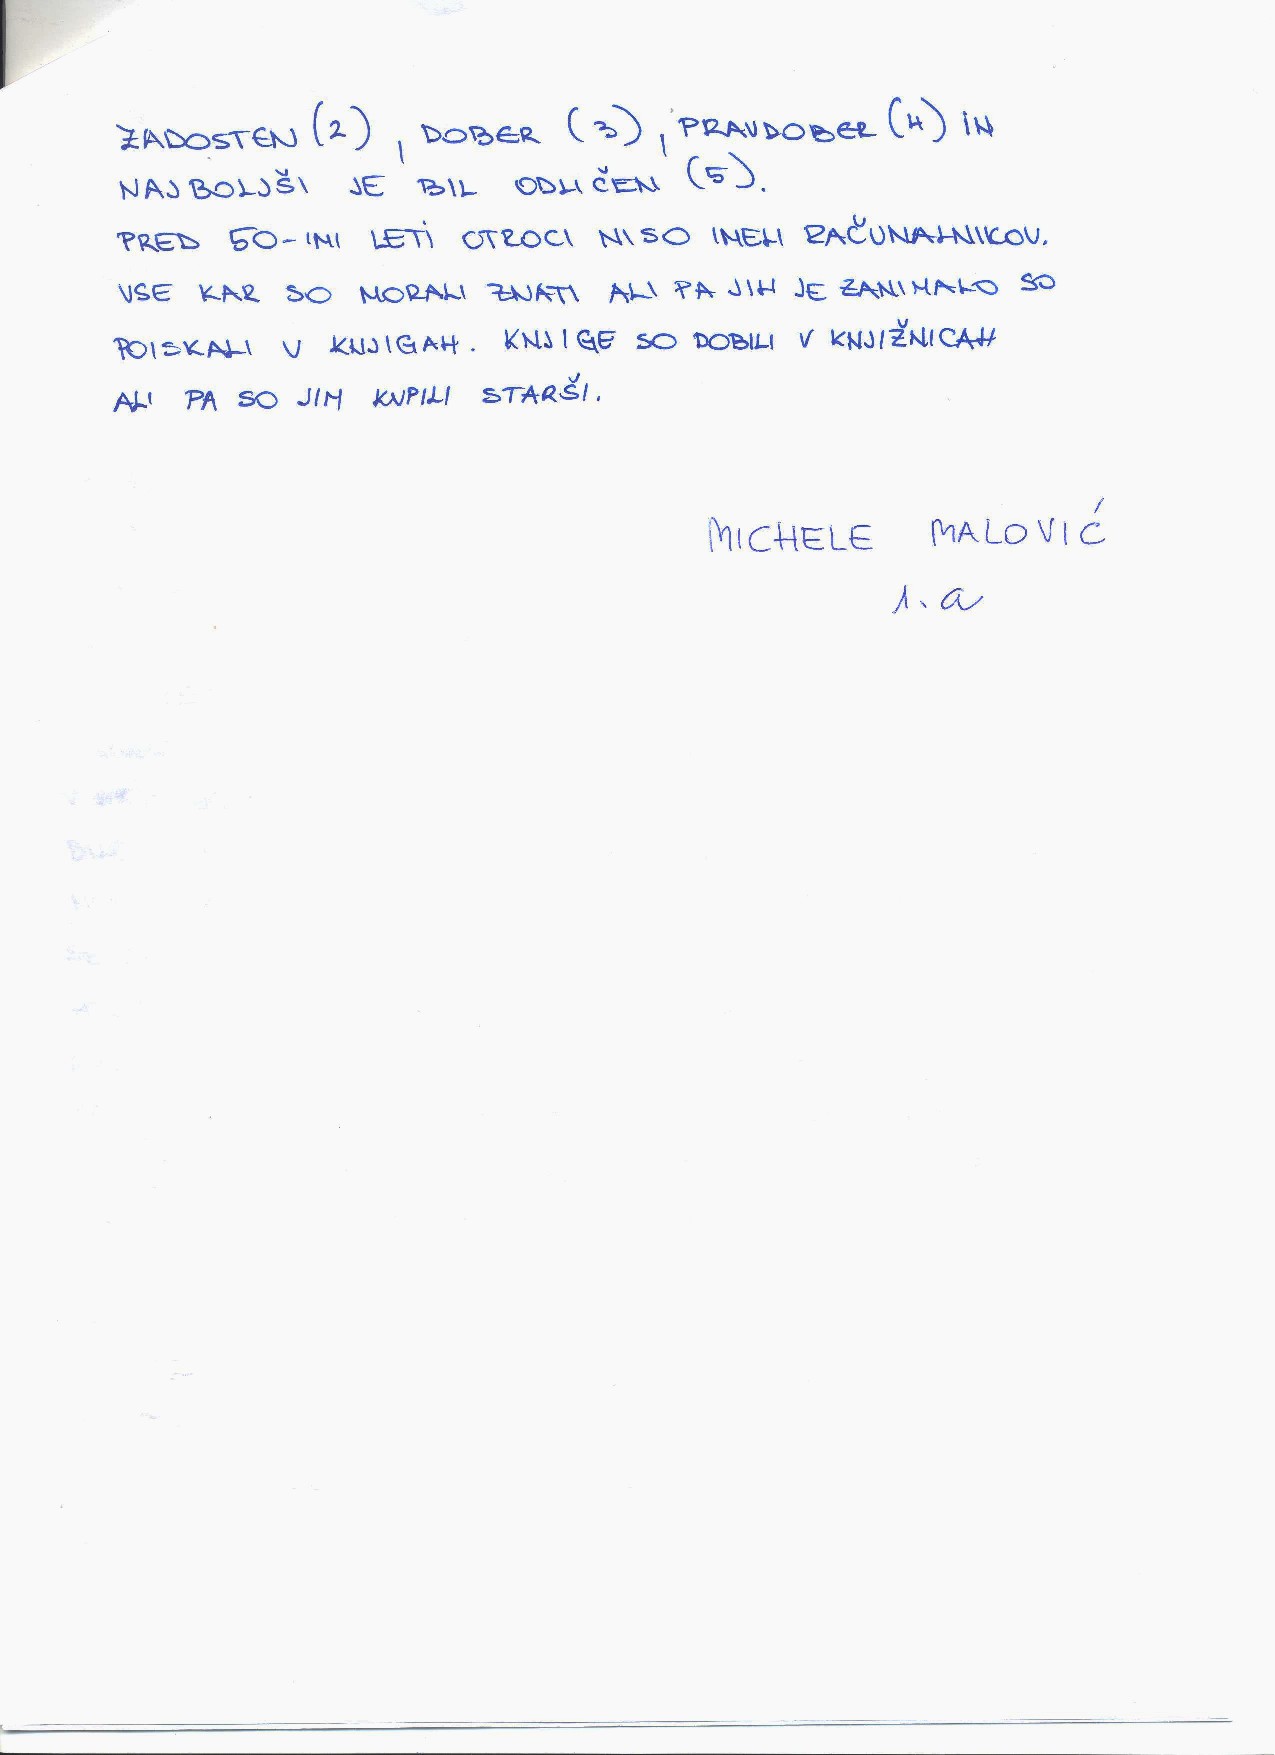 ZADOSTEN (2), DOBER (3), PRAVDOBER (4) IN
NAJBOLJŠI JE BIL ODLIČEN (5).
PRED 50-IMI LETI OTROCI NISO IMELI RAČUNALNIKOV.
VSE KAR SO MORALI ZNATI ALI PA JIH JE ZANIMALO SO
POISKALI V KNJIGAH. KNJIGE SO DOBILI V KNJIŽNICAH
ALI PA SO JIM KUPILI STARŠI.
MICHELE MALOVIĆ
1. a